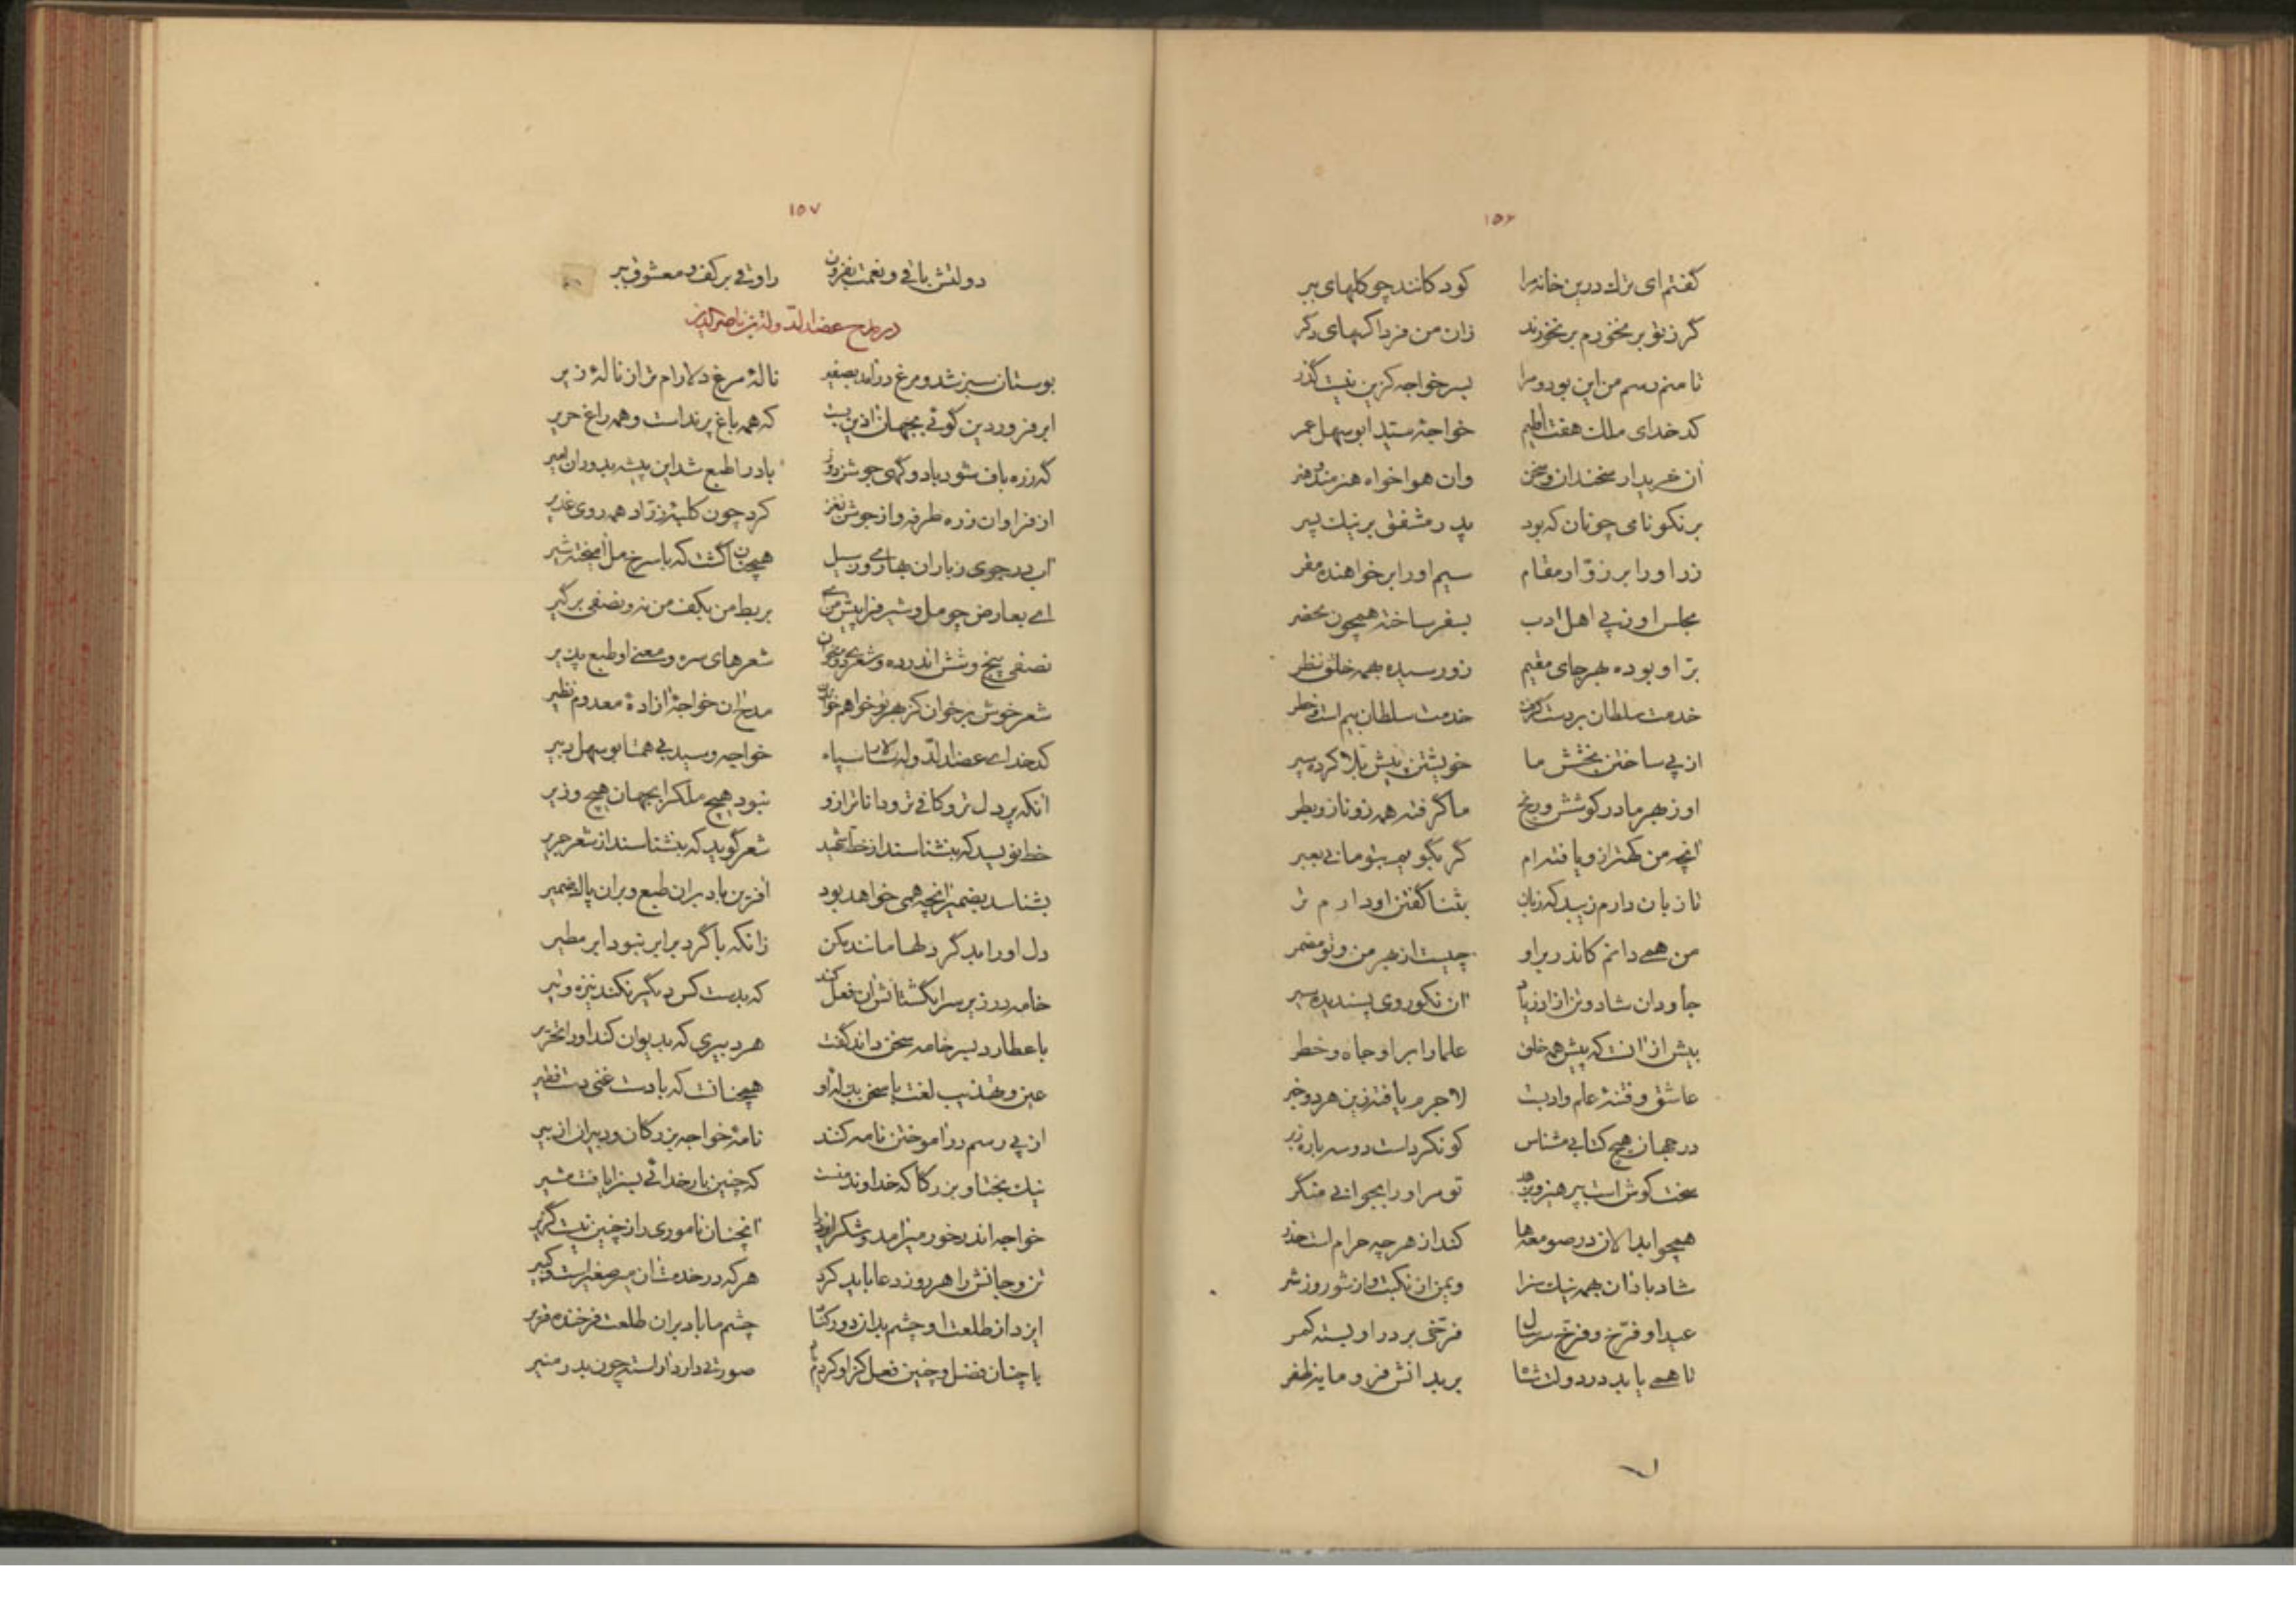 ١٥٦
گفتم ای ترک درین خانه مرا کودکانند چو گلهای ببر
گر ز تو بر نخورم بر نخورند زان من فردا کسهای دگر
تا منم رسم من این بود و مرا بسر خواجه کزین نیست گذر
کدخدای ملک هفت اقلیم خواجه سید ابوسهل عمر
آن خریدار سخندان و سخن وان هواخواه هنرمند و هنر
بر نکونامی چونان که بود پدر مشفق بر نیک پسر
زر او را بر زوار مقام سیم او را بر خواهنده مقر
مجلس او ز پی اهل ادب بسفر ساخته همچون بحضر
بر او بوده بهر جای مقیم زو رسیده بهمه خلق نظر
خدمت سلطان بر دست گرفت خدمت سلطان بیم است و خطر
از پی ساختن بخشش ما خویشتن پیش بلا کرده سپر
او ز بهر ما در کوشش و رنج ما گرفته همه زو ناز و بطر
آنچه من کهتر ازو یافته ام گر بگویم بتو مانی بعبر
تا زبان دارم زیبد که زبان بثنا گفتن او دارم تر
من همی دانم کاندر بر او چیست از بهر من و تو مضمر
جاودان شاد و تن آزاد زیاد آن نکوروی پسندیده سیر
بیش از آنست که پیش همه خلق علما را بر او جاه و خطر
عاشق و فتنه علم و ادبست لاجرم یافته زین هر دو خبر
در جهان هیچ کتابی مشناس کو نکردست دو سه باره زبر
سخت کوش است بپرهیز و بزهد تو مر او را بجوانی منگر
همچو ابدالان در صومعه ها کند از هر چه حرام است حذر
شاد باد آن بهمه نیک سزا ویمن از نکبت و از شور و ز شر
عید او فرخ و فرخ سر سال فرخی بر در او بسته کمر
تا همی یابد در دولت شاه بر بداندش فزو مایه ظفر
١٥٧
دولتش باقی و نعمت بفزون راوقی بر کف و معشوق ببر
در مدح عضدالدوله بن ناصرالدین
بوستان سبز شد و مرغ درآمد بصفیر ناله مرغ دلارام تر از ناله زیر
ابر فروردین گوئی بجهان آذین بست که همه باغ پرند است و همه راغ حریر
گه زره باف شود باد و گهی جوشن دوز باد را طبع شد این پیشه بدوران امیر
از فراوان زره طرفه و از جوشن نغز کرد چون کلبه زراد همه روی غدیر
آب در جوی ز باران بهاری و ز سیل همچنان گشت که با سرخ مل آمیخته شیر
ای بعارض چو مل و شیر فراپیش من آی بربط من بکف من نه و نصفی برگیر
نصفی پنج و شش اندر ده و شعری دو بخوان شعرهای سره و معنی او طبع پذیر
شعر خوش برخوان کز بهر تو خواهم خواندن مدح آن خواجه آزاده معدوم نظیر
کدخدای عضدالدوله سالار سپاه خواجه و سید بی همتا بوسهل دبیر
آنکه پر دل تر و کافی تر و داناتر ازو نبود هیچ ملک را بجهان هیچ وزیر
خط نویسد که بنشناسند از خط شهید شعر گوید که بنشناسند از شعر جریر
بشناسد بضمیر آنچه همی خواهد بود آفرین باد بران طبع و بران پاک ضمیر
دل او را بد گر دلها مانند مکن زانکه با گرد برابر نبود ابر مطیر
خامه در زیر سر انگشتانش آن فعل کند که بدست کس دیگر نکند نیزه و تیر
با عطارد بسر خامه سخن داند گفت هر دبیری که بدیوان کند او را تحریر
عین و تهذیب لغت با سخن بیدانه او همچنانست که با دست غنی دست فقیر
از پی رسم درآموختن نامه کنند نامه خواجه بزرگان و دبیران از بر
نیک بختا و بزرگا که خداوند منست که چنین بار خدائی بسزا یافت مشیر
خواجه اندر خور میر آمد و شکر ایزد را آنچنان ناموری را ز چنین نیست گزیر
تن و جانش را هر روز دعا باید کرد هر که در خدمت آن میر صغیر است و کبیر
ایزد از طلعت او چشم بدان دور کناد چشم ما باد بران طلعت فرخنده قریر
با چنان فضل و چنین فعل کزو کردم یاد صورتی دارد آراسته چون بدر منیر